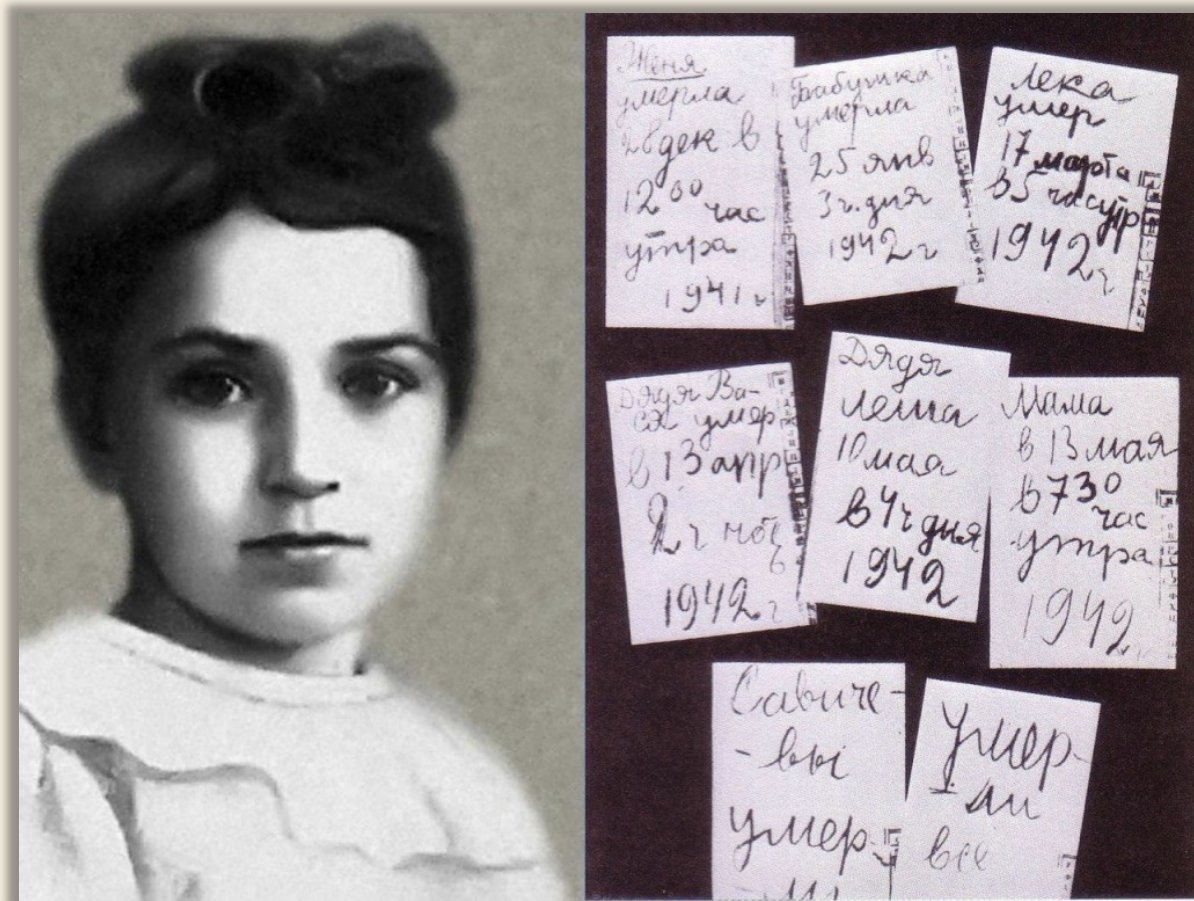 Женя
умерла
28 дек в
12 00 час
утра
1941 г
Бабушка
умерла
25 янв
3 ч. дня
1942 г
Лека
умер
17 марта
в 5 час утр
1942 г
Дядя Ва-
ся умер
в 13 апр
2 ч ноч
1942 г
Дядя
Леша
10 мая
в 4 ч дня
1942
Мама
в 13 мая
в 7 30
час
утра
1942 г
Савиче-
-вы
умер-
-ли
Умер-
-ли
все